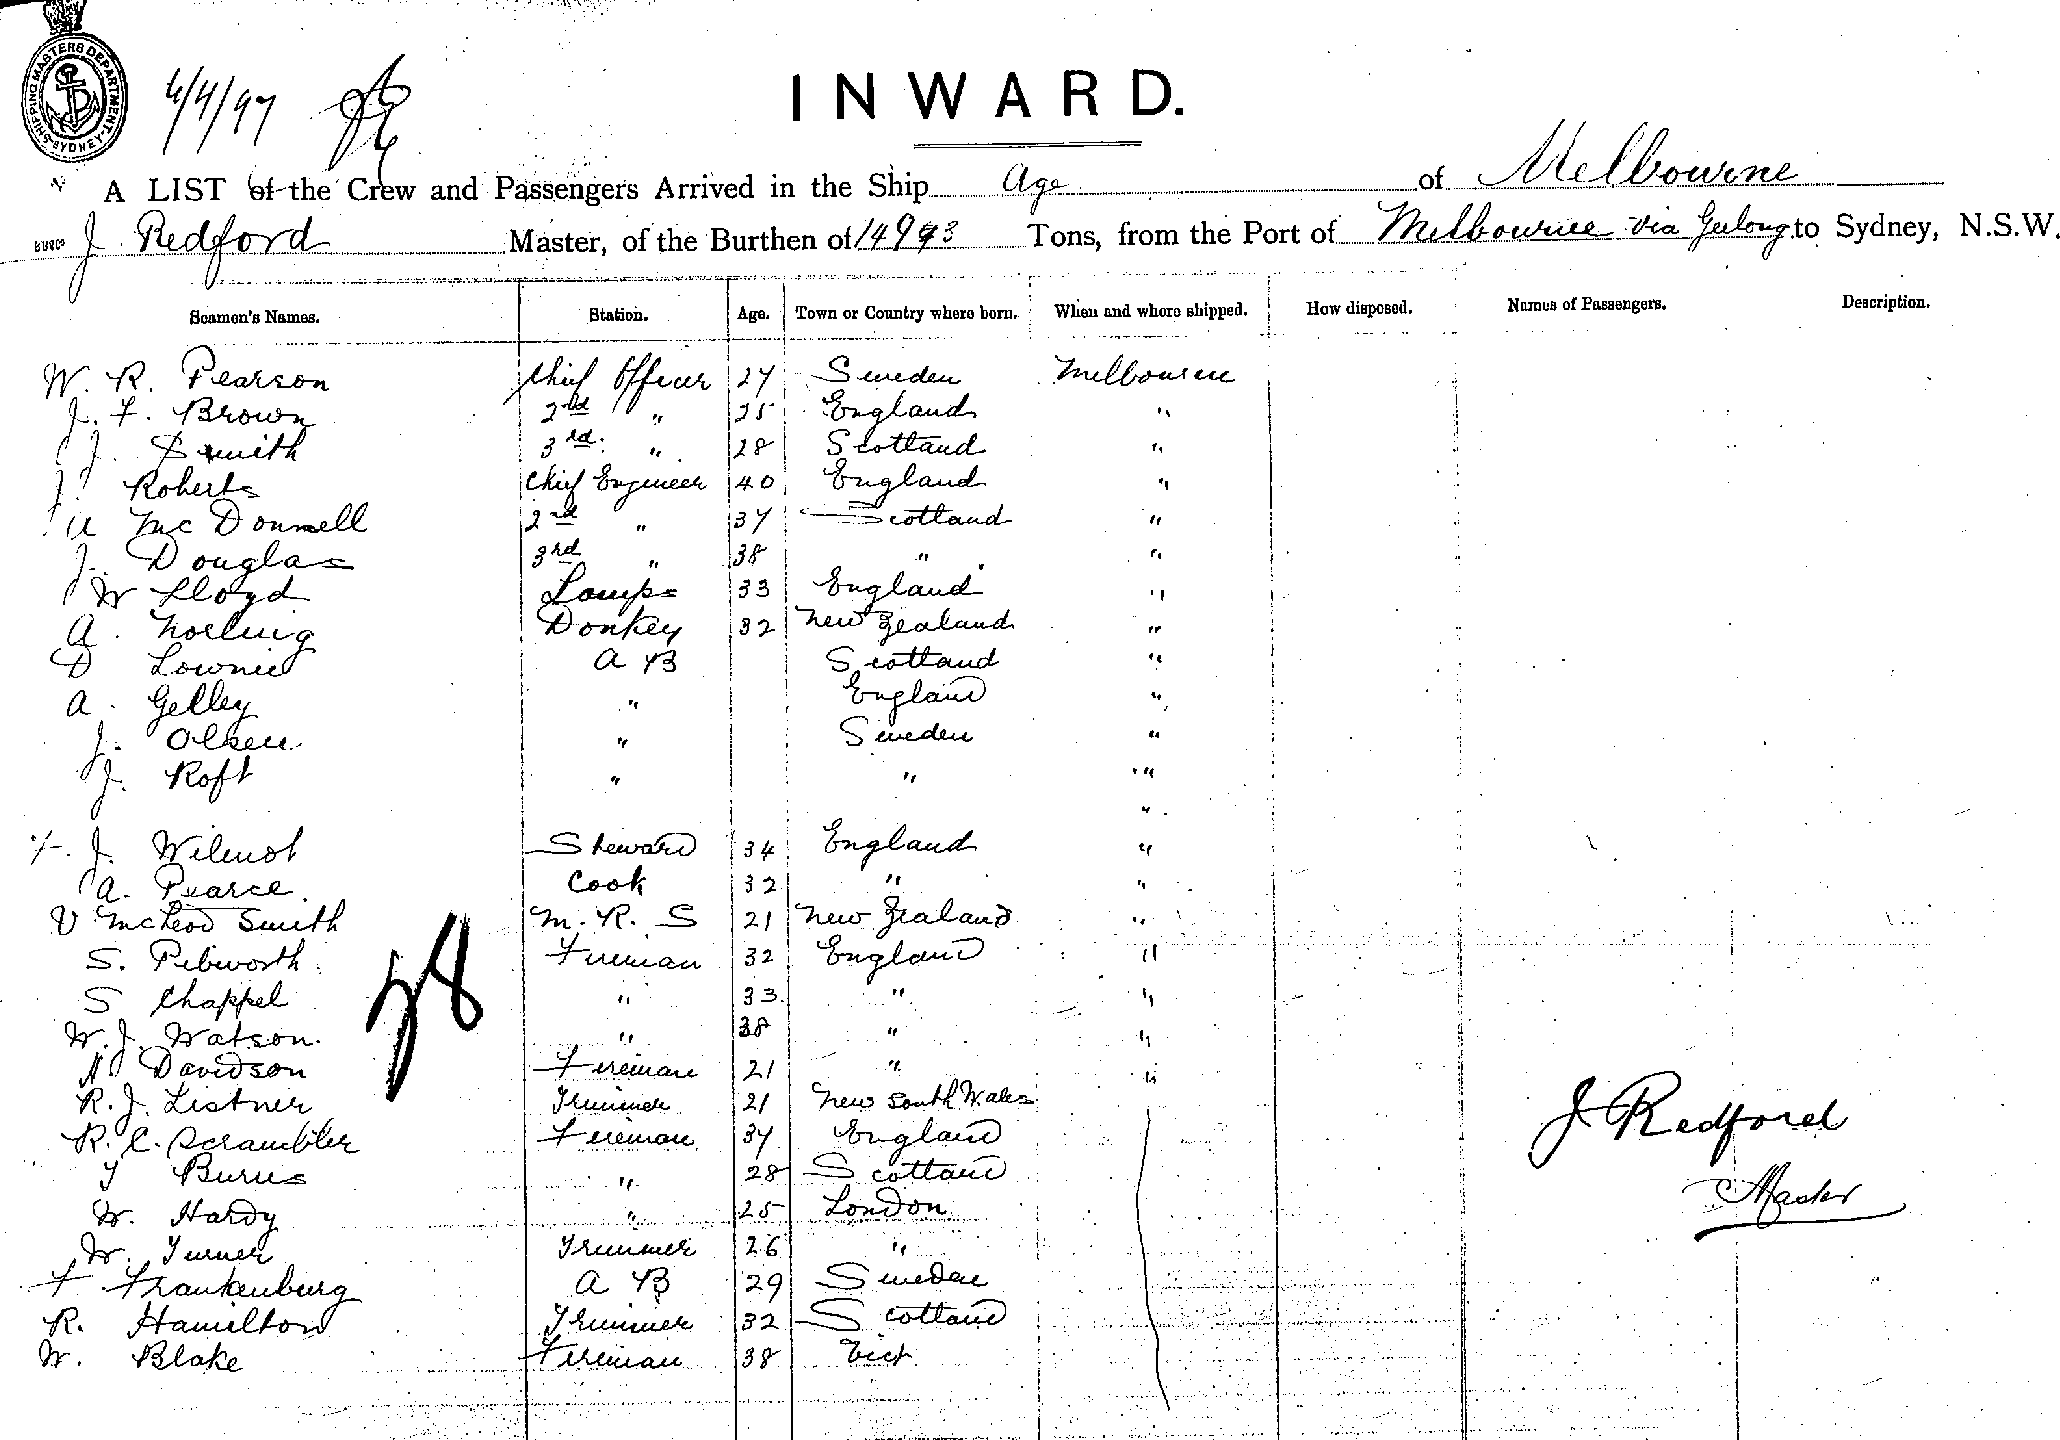 SHIPPING MASTERS DEPARTMENT SYDNEY
6/4/97
INWARD.
A LIST of the Crew and Passengers Arrived in the Ship Age of Melbourne
J Redford Master, of the Burthen of Tons, from the Port of Melbourne via Geelong to Sydney, N.S.W.
Seamen's Names. Station. Age. Town or Country where born. When and where shipped. How disposed. Names of Passengers. Description.
W. R. Pearson Chief Officer 27 Sweden Melbourne
J. F. Brown 2nd " 25 England "
J. Smith 3rd. " 28 Scotland "
J Roberts Chief Engineer 40 England "
A Mc Donnell 2nd " 37 Scotland "
J. Douglas 3rd " 38 " "
W Lloyd Lamps 33 England "
A. Norling Donkey 32 New Zealand "
D Lownie A B Scotland "
A. Gelley " England "
J. Olsen " Sweden "
J. Roft " " "
"
J. Wilmot Steward 34 England "
A. Pearce Cook 32 " "
V McLeod Smith M. R. S 21 New Zealand "
S. Pibworth Fireman 32 England "
S Chappel " 33 " "
W. J. Watson " 38 " "
A Davidson Fireman 21 " "
R. J. Listner Trimmer 21 New South Wales
R. C. Scrambler Fireman 37 England
T Burns " 28 Scotland
W. Hardy " 25 London
W. Turner Trimmer 26 "
F Frankenburg A B 29 Sweden
R. Hamilton Trimmer 32 Scotland
W. Blake Fireman 38 Vict
28
J Redford
Master